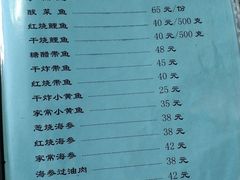 酸菜鱼 65元/份
红烧鲤鱼 40元/500克
干烧鲤鱼 40元/500克
糖醋带鱼 48元
干炸带鱼 45元
红烧带鱼 40元
干炸小黄鱼 25元
家常小黄鱼 35元
葱烧海参 38元
红烧海参 42元
家常海参 38元
海参过油肉 38元
42